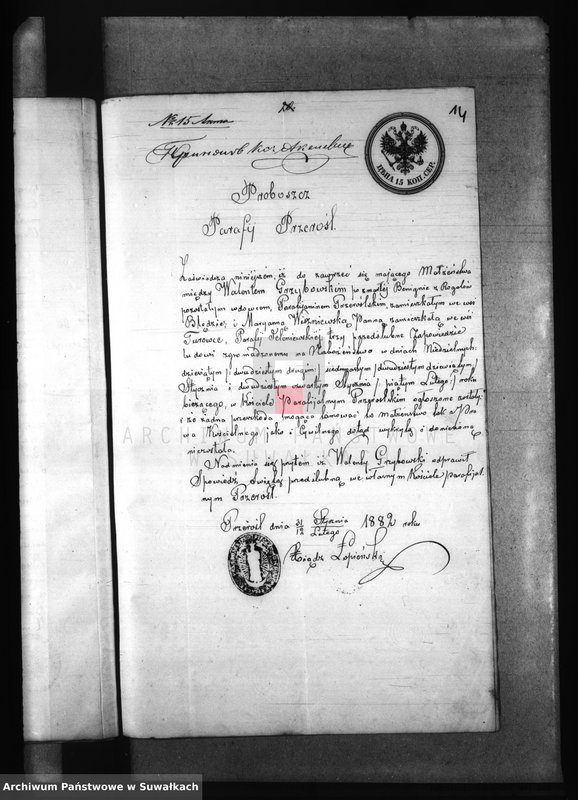 № 15 Anna
14
ЦѢНА 15 КОП. СЕР.
Proboszcz
Parafij Przerośl.
Zaświadcza niniejszem, iż do zawrzeć się mającego Małżeństwa
między Walentem Grzybowskim po zmarłej Benignie z Rogalów
pozostałym wdowcem, Parafijaninem Przeroślskim, zamieszkałym we wsi
Błędzie; i Maryanną Wiszniewską Panną zamieszkałą we wsi
Turowce, Parafij Jeleniewskiej trzy przedślubne Zapowiedzie
ludowi zgromadzonemu na Nabożeństwo w dniach Niedzielnych:
dziewiątym / dwudziestym drugim / siedmnastym / dwudziestym dziewiątym /
Stycznia i dwudziestym czwartym Stycznia / piątym Lutego / roku
bieżącego, w Kościele Parafijalnym Przeroślskim ogłoszone zostały
i że żadna przeszkoda mogąca tamować to małżeństwo tak z Pra-
wa Kościelnego jako i Cywilnego odtąd wykrytą i doniesioną
niezostała.
Nadmienia się przytem iż Walenty Grzybowski odprawił
Spowiedź świętą przedślubną we własnym Kościele Parafijal-
nym Przerośl.
Przerośl dnia 31/12 Stycznia/Lutego 1882 roku
Ksiądz Łopieński
ARCHIWUM PAŃSTWOWE
W SUWAŁKACH
Archiwum Państwowe w Suwałkach